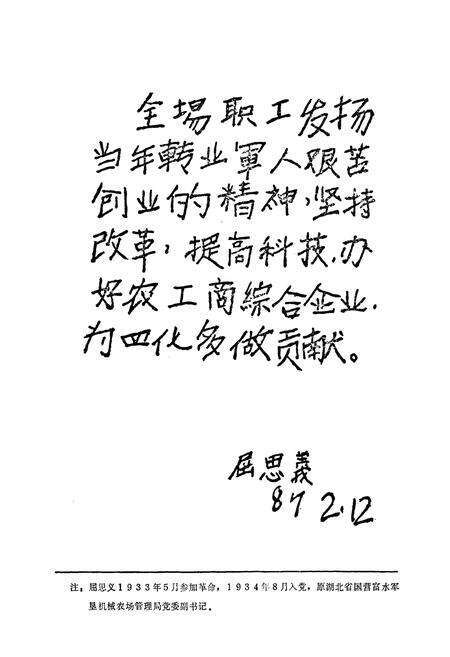 全場职工发扬
当年轉业軍人艰苦
创业的精神，坚持
改革，提高科技，办
好农工商綜合企业，
为四化多做贡献。
屈思義
87 2.12
注：屈思义1933年5月参加革命，1934年8月入党，原湖北省国营富水军
垦机械农场管理局党委副书记。